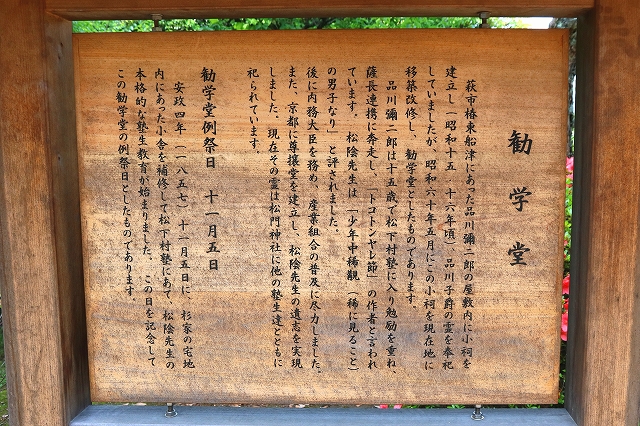 勧学堂
萩市椿東船津にあった品川彌二郎の屋敷内に小祠を
建立し（昭和十五 十六年頃）品川子爵の霊を奉祀
していましたが、昭和六十年五月にこの小祠を現在地に
移築改修し、勧学堂としたものであります。
品川彌二郎は十五歳で松下村塾に入り勉励を重ね、
薩長連携に奔走し、「トコトンヤレ節」の作者と言われ
ています。松陰先生は「少年中稀覯（稀に見ること）
の男子なり」と評されました。
後に内務大臣を務め、産業組合の普及に尽力しました。
また、京都に尊攘堂を建立し、松陰先生の遺志を実現
しました。現在その霊は松門神社に他の塾生達とともに
祀られています。
勧学堂例祭日 十一月五日
安政四年（一八五七）十一月五日に、杉家の宅地
内にあった小舎を補修して松下村塾にあて、松陰先生の
本格的な塾生教育が始まりました。この日を記念して
この勧学堂の例祭日としたものであります。